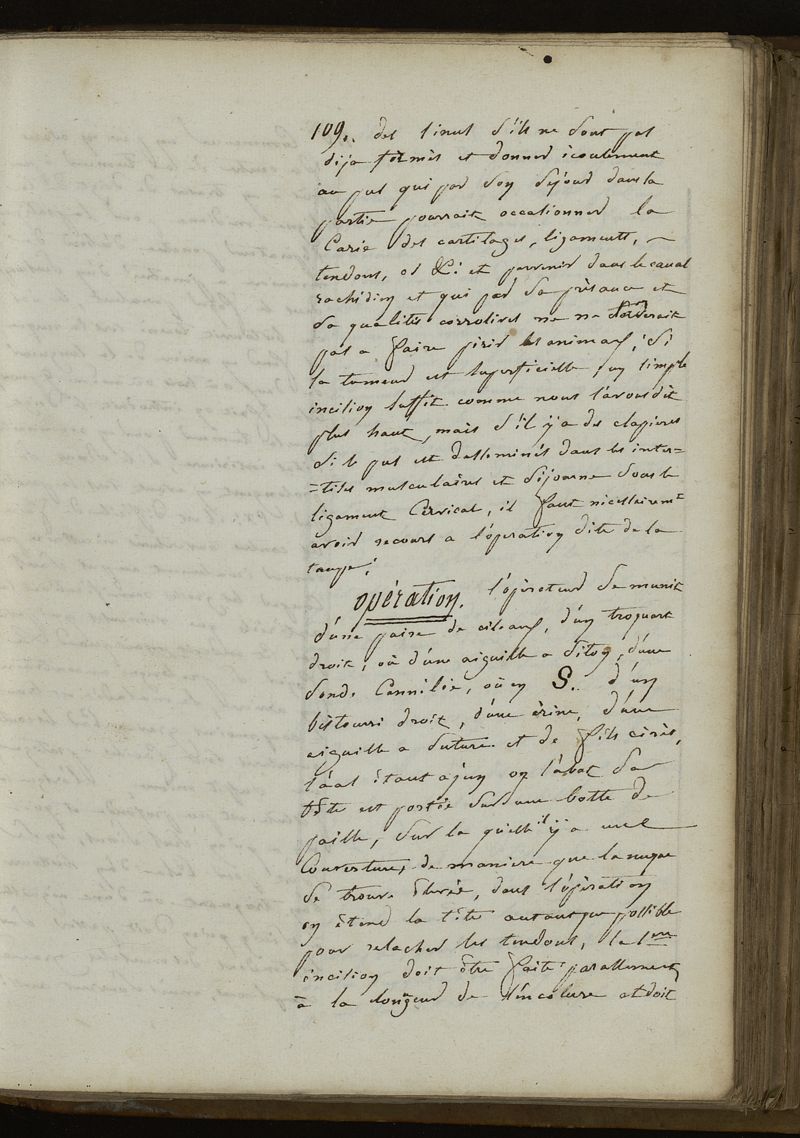 109. des sinus s'ils ne sont pas
dija formés et donner icoulement
au pus qui par son sejour dans la
partie pourrait occationner la
Carie des cartilages, ligaments, ~
tendons, os &: et parvenir dans le canal
rachidien et qui par sa présance et
sa qualités corrosives ne
pas a faire périr les animaux; Si
la tumeur est superficielle, un simple
incision suffit comme nous l'avons dit
plus haut, mais s'il y a des clapiers
si le pus est disseminés dans les inter-
=tises musculaires et sejourne sous le
ligament Cervical, il faut nicessairemt
avoir recours a l'opération dite de la
taupe;
opération. l'opérateur se munit
d'une paire de ciseaux, d'un troquart
droit, où d'une aiguille a séton, d'une
sonde Cannilée, où en S. d'un
bistouri droit, d'une érine, d'une
aiguille a suture et de fils cirés,
l'aal étant a jun on l'abat sa
tête est portée sur une botte de
paille, sur la quelle il y a une
Couverture, de maniere que la nuque
se trouve élevée, dans l'opération
on étend la tête autant que possible
pour relacher les tendons, la 1ere
incision doit être faite parallement
à la longeur de l'incolure et doit